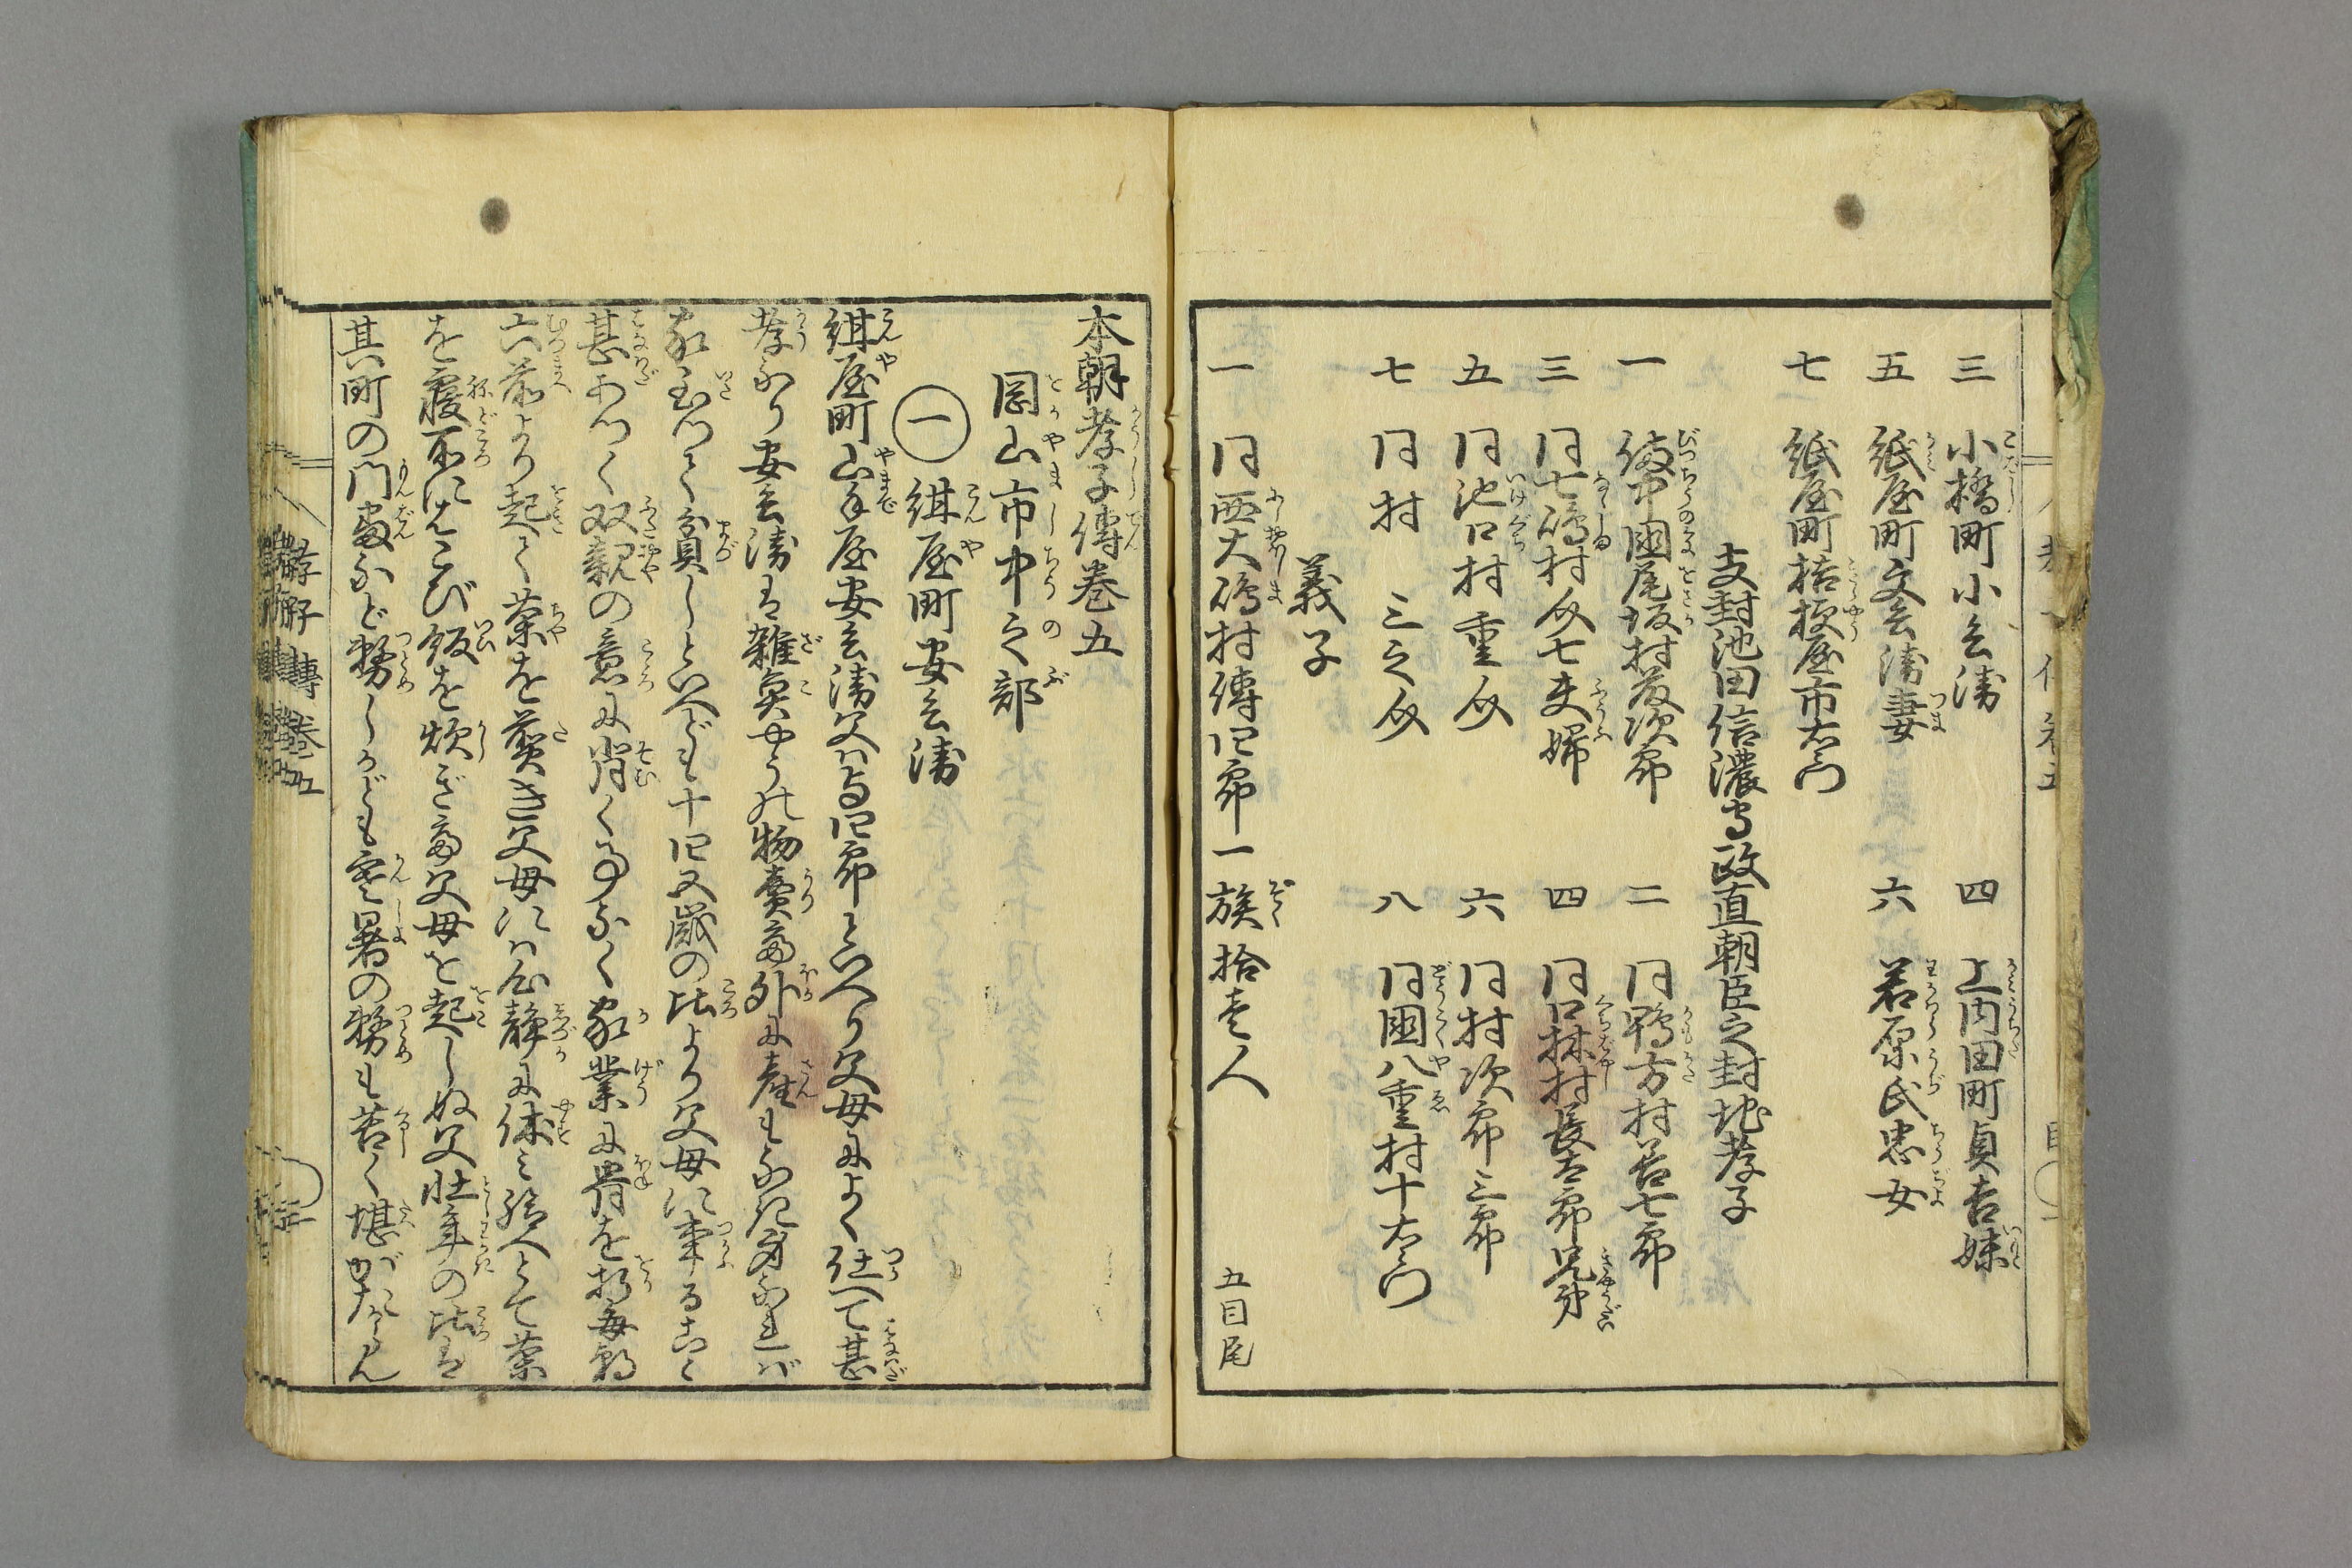 三 小橋町小兵衛 四 上内田町貞吉妹
五 紙屋町文兵衛妻 六 若原氏忠女
七 紙屋町桔梗屋市右衛門
支封池田信濃守政直朝臣之封地孝子
一 備中國尾坂村茂次郎 二 同鴨方村岩七郎
三 同七嶋村久七夫婦 四 同口林村長太郎兄弟
五 同池口村重久 六 同村次郎三郎
七 同村三之久 八 同國八重村十右衛門
義子
一 同西大嶋村傳四郎一族拾壱人
五目尾
本朝孝子傳巻五
岡山市中之部
一 紺屋町安兵衛
紺屋町山本屋安兵衛父ハ与四郎といへり父母によく仕へて甚
孝なり安兵衛は雜魚やうの物賣商外に産もなき身なれバ
家至つて貧しといへども十四五歳の比より父母に事ること
甚あつく双親の意に背く事なく家業に骨を折毎朝
六前より起て茶を煑き父母にハ心静に休み給へとて茶
を寝所にはこび飯を炊ぎ而父母を起しぬ父壮年の比は
其町の門番など務しかども寒暑の務も苦く堪がたからん
孝子傳 巻五